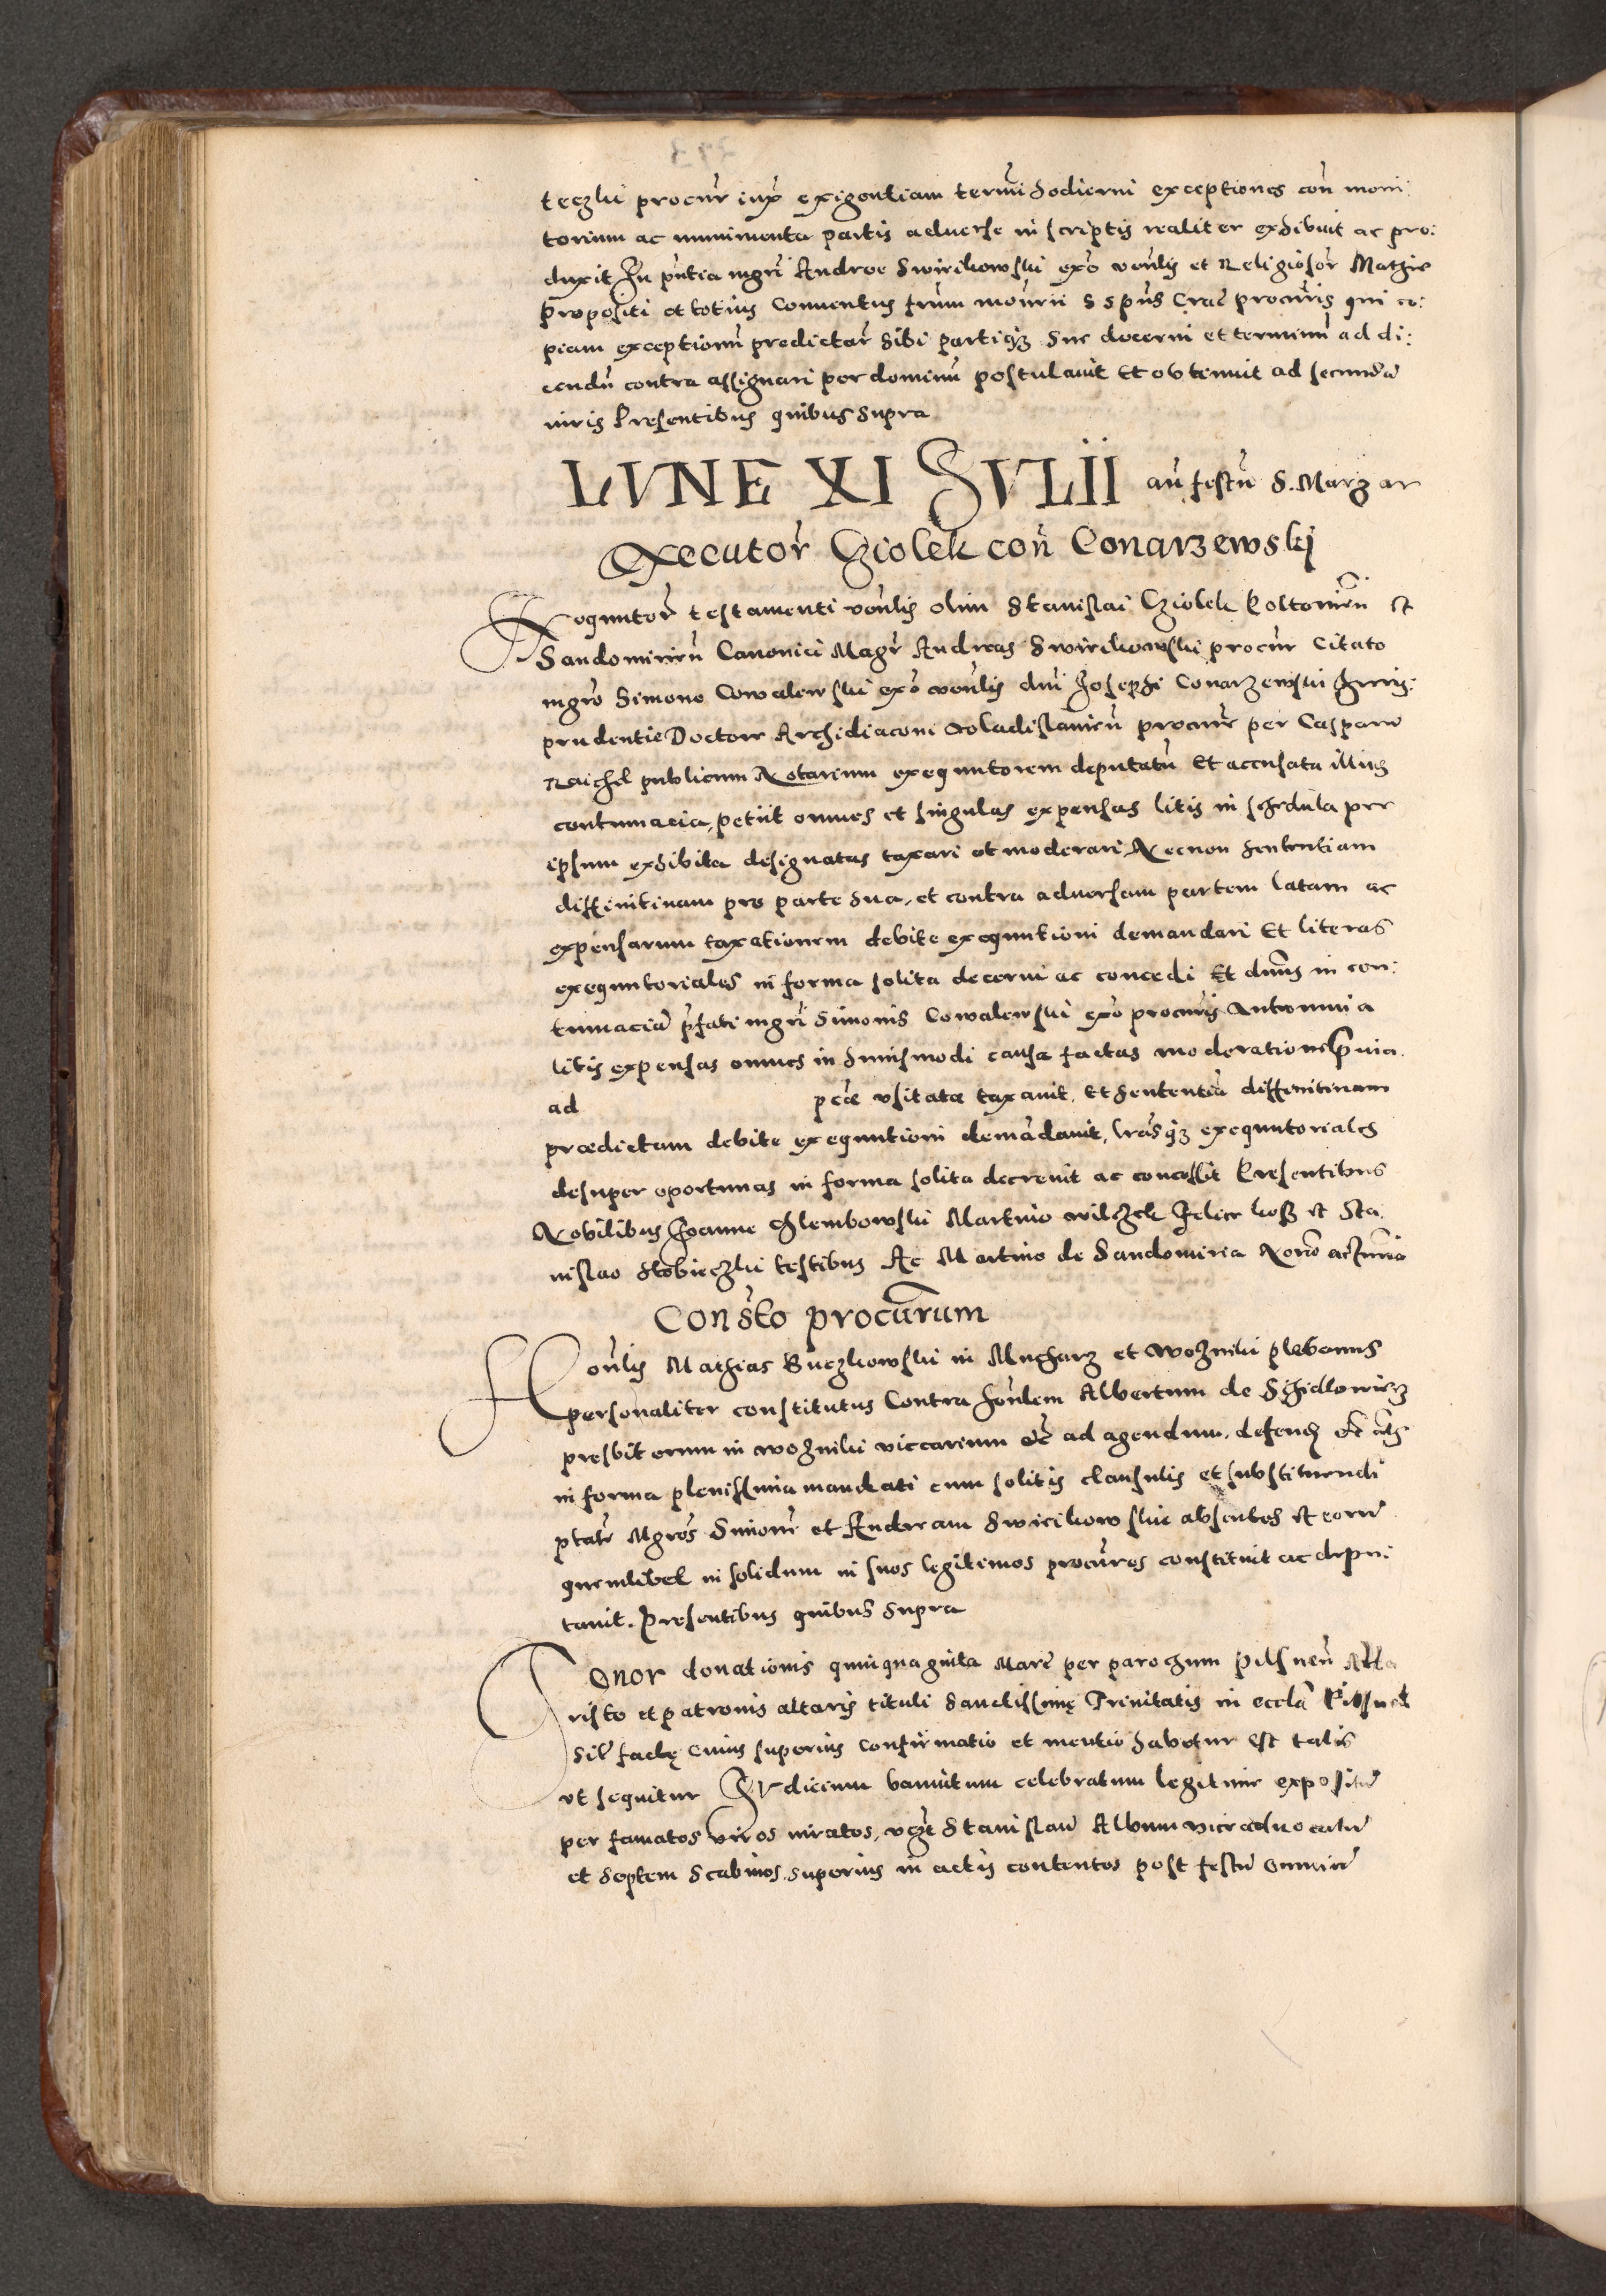 teczki procur iux exigentiam termi hodierni exceptiones con moni:
torium ac munimenta partis adverse in scriptis realiter exhibuit ac pro:
duxit In pntia mgri Andree Swirikowski ex o venlis et Religiosor Mathie
Propositi et totius Conventus frum monrii S Spus Crac procuris qui co:
piam exceptionu predictar sibi partiq3 sue decerni et terminu ad di:
cendu contra assignari per dominu postulavit Et obtinuit ad secunda
iuris Presentibus quibus supra
LVNE XI IVLII an festu S. Margar
Executor Cziolek con Conarzewskj
Exequutor testamenti venlis olim Stanislai Cziolek Poltovien et
Sandomirien Canonici Magr Andreas Swirikowski procur Citato
mgro Simone Cowalewski ex o venlis dni Josephi Conarzewski Juris:
prudentie Doctore Archidiaconi Wladislavien procure per Caspare
Raichel publicum Notarium exequutorem deputatu Et accusata illius
contumacia, petiit omnes et singulas expensas litis in schedula per
ipsum exhibita designatas taxari et moderari Necnon sententiam
diffinitivam pro parte sua, et contra adversam partem latam ac
expensarum taxationem debite exequutioni demandari Et literas
exequutoriales in forma solita decerni ac concedi Et dnus in con:
tumacia pfati mgri Simonis Cowalewski ex o procuris antomnia
litis expensas omnes in huiusmodi causa factas moderatione pvia
ad pcae usitatae taxavit. Et sententia diffinitivam
praedictam debite exequutioni demadavit, lrasq3 exequutoriales
desuper oportunas in forma solita decrevit ac concessit Presentibus
Nobilibus Joanne Chlembowski Martino wilczek Felice et Sta
nislao Stobieczki testibus Ac Martino de Sandomiria
Consto procurum
Honlis Mathias Buczkowski in Mucharz et Wozniki plebanus
personaliter constitutus Contra honlem Albertum de Schidlowiecz
presbiterum in wozniki viccarium etc ad agendum, defend etc
in forma plenissima mandati cum solitis clausulis et substituendi
ptate Mgros Simone et Andream Swirikowskie absentes et eorum
quemlibet in solidum in suos legitimos procures constituit ac depu:
tavit. Presentibus quibus supra
Tenor donationis quinquaginta Marc per parochum Pilsnen Alta
risto et patronis altaris tituli Sanctissimę Trinitatis in eccla Pilsnen
sil factę cuius superius confirmatio et mentio habetur est talis
ut sequitur Judicium bannitum celebratum legitime expositu
per famatos viros iuratos, vcz Stanislau Album viceadvocatu
et septem Scabinos superius in actis contentos post festu omniu